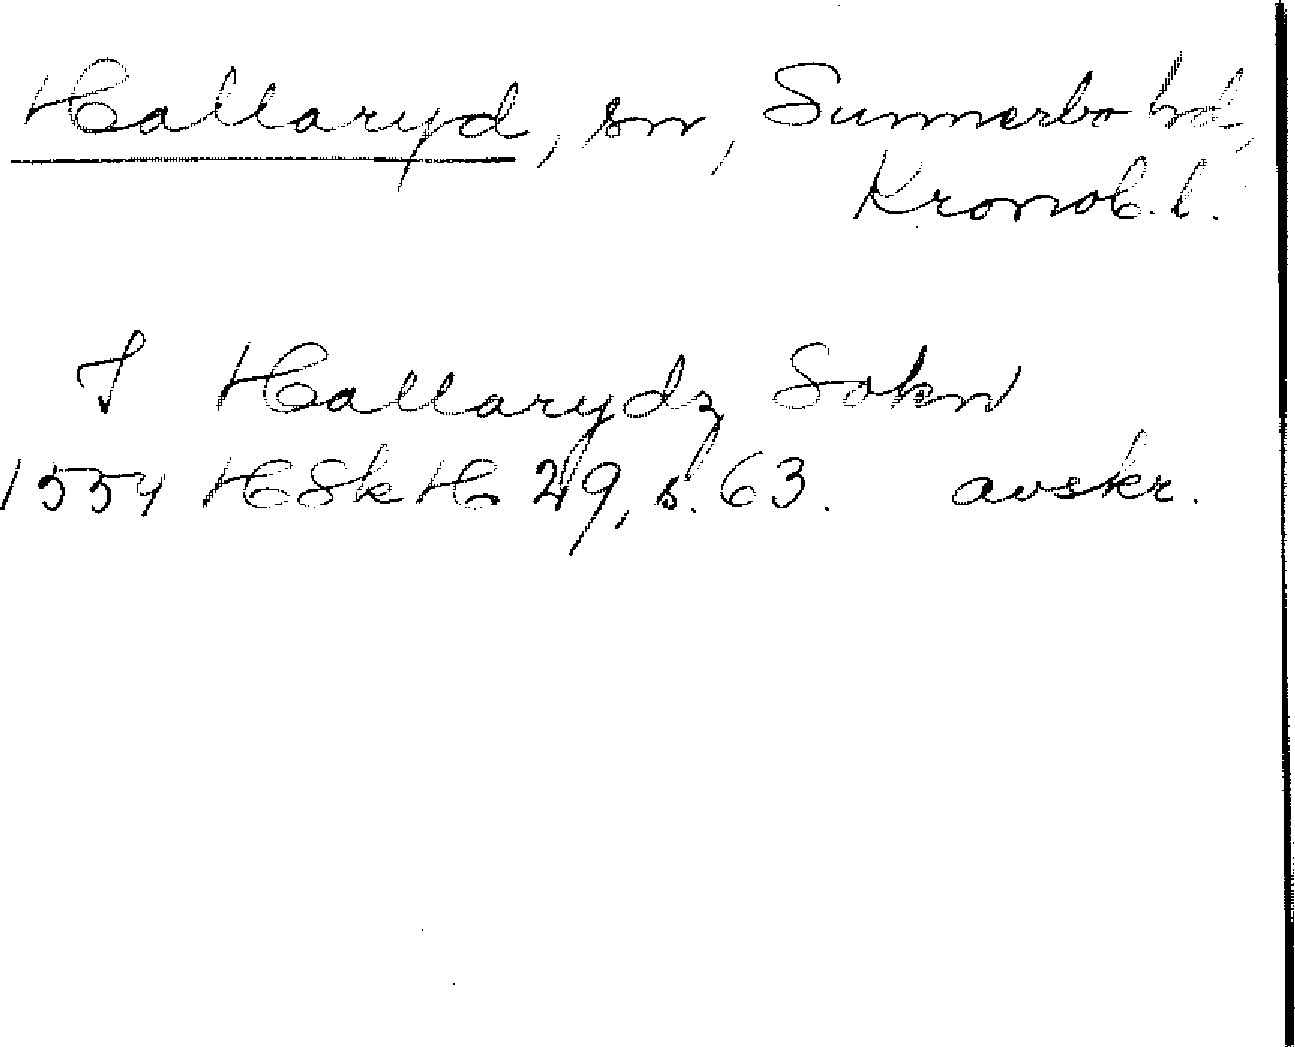 Hallaryd, sn, Sunnerbo hd,
Kronob. l.
I Hallarydz Sokn
1554 HSkH 29, s. 63. avskr.